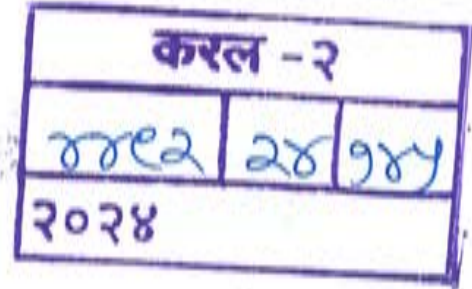 करल - २
४४९२ २४ १४५
२०२४